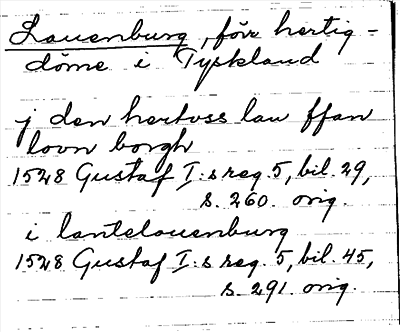 Lauenburg, förr hertig-
döme i Tyskland
j den hertoss lan ffan
lovn borgh
1528 Gustaf I:s reg. 5, bil. 29,
s. 260. orig.
i lantelouenburg
1528 Gustaf I:s reg. 5, bil. 45,
s. 291. orig.